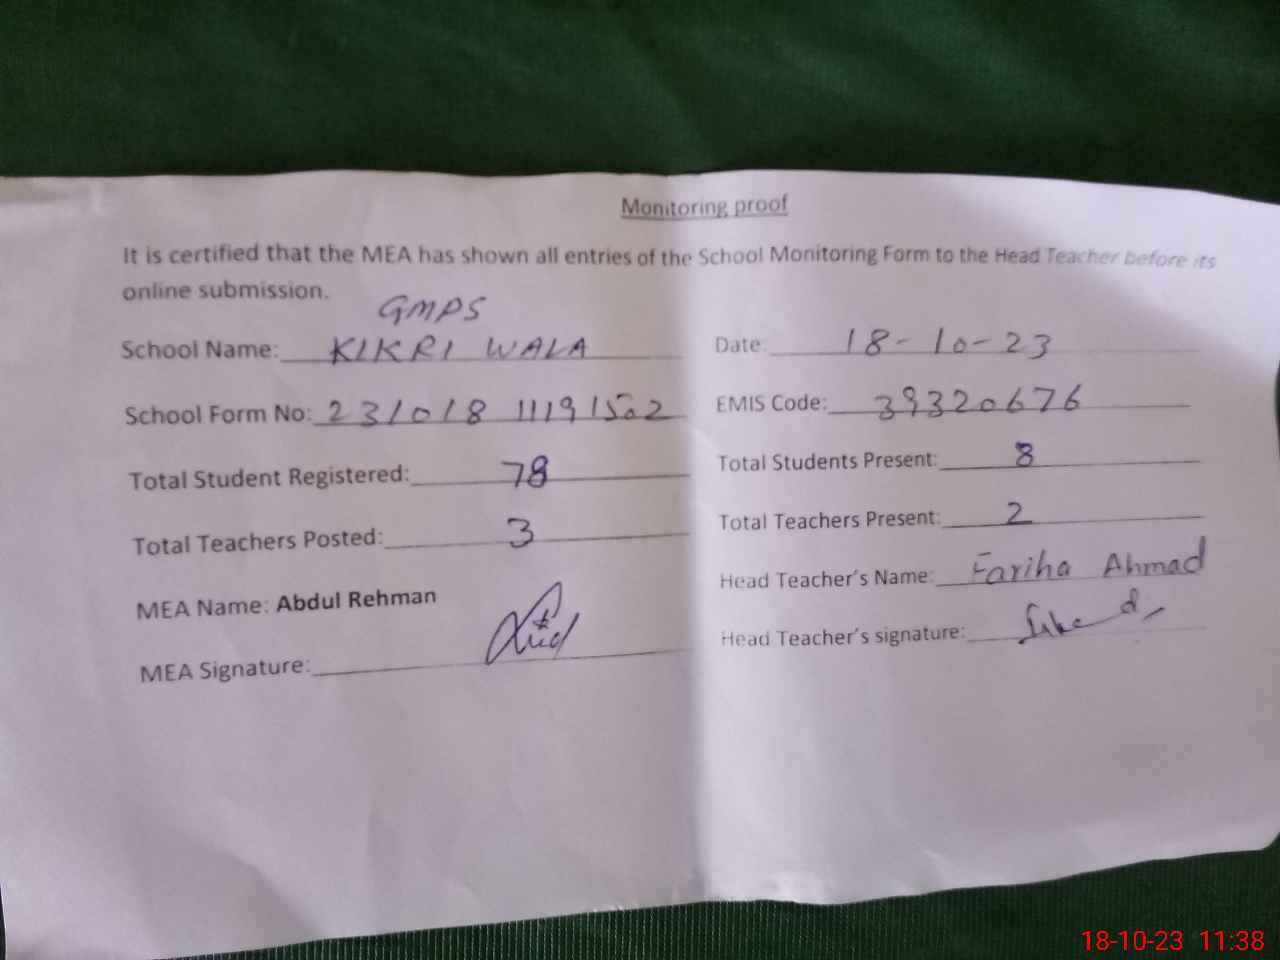 Monitoring proof
It is certified that the MEA has shown all entries of the School Monitoring Form to the Head Teacher before its
online submission.
GMPS
School Name: KIKRI WALA
Date: 18-10-23
School Form No: 231018 11191502
EMIS Code: 39320676
Total Student Registered: 78
Total Students Present: 8
Total Teachers Posted: 3
Total Teachers Present: 2
MEA Name: Abdul Rehman
Head Teacher's Name: Fariha Ahmad
MEA Signature:
Head Teacher's signature:
18-10-23 11:38